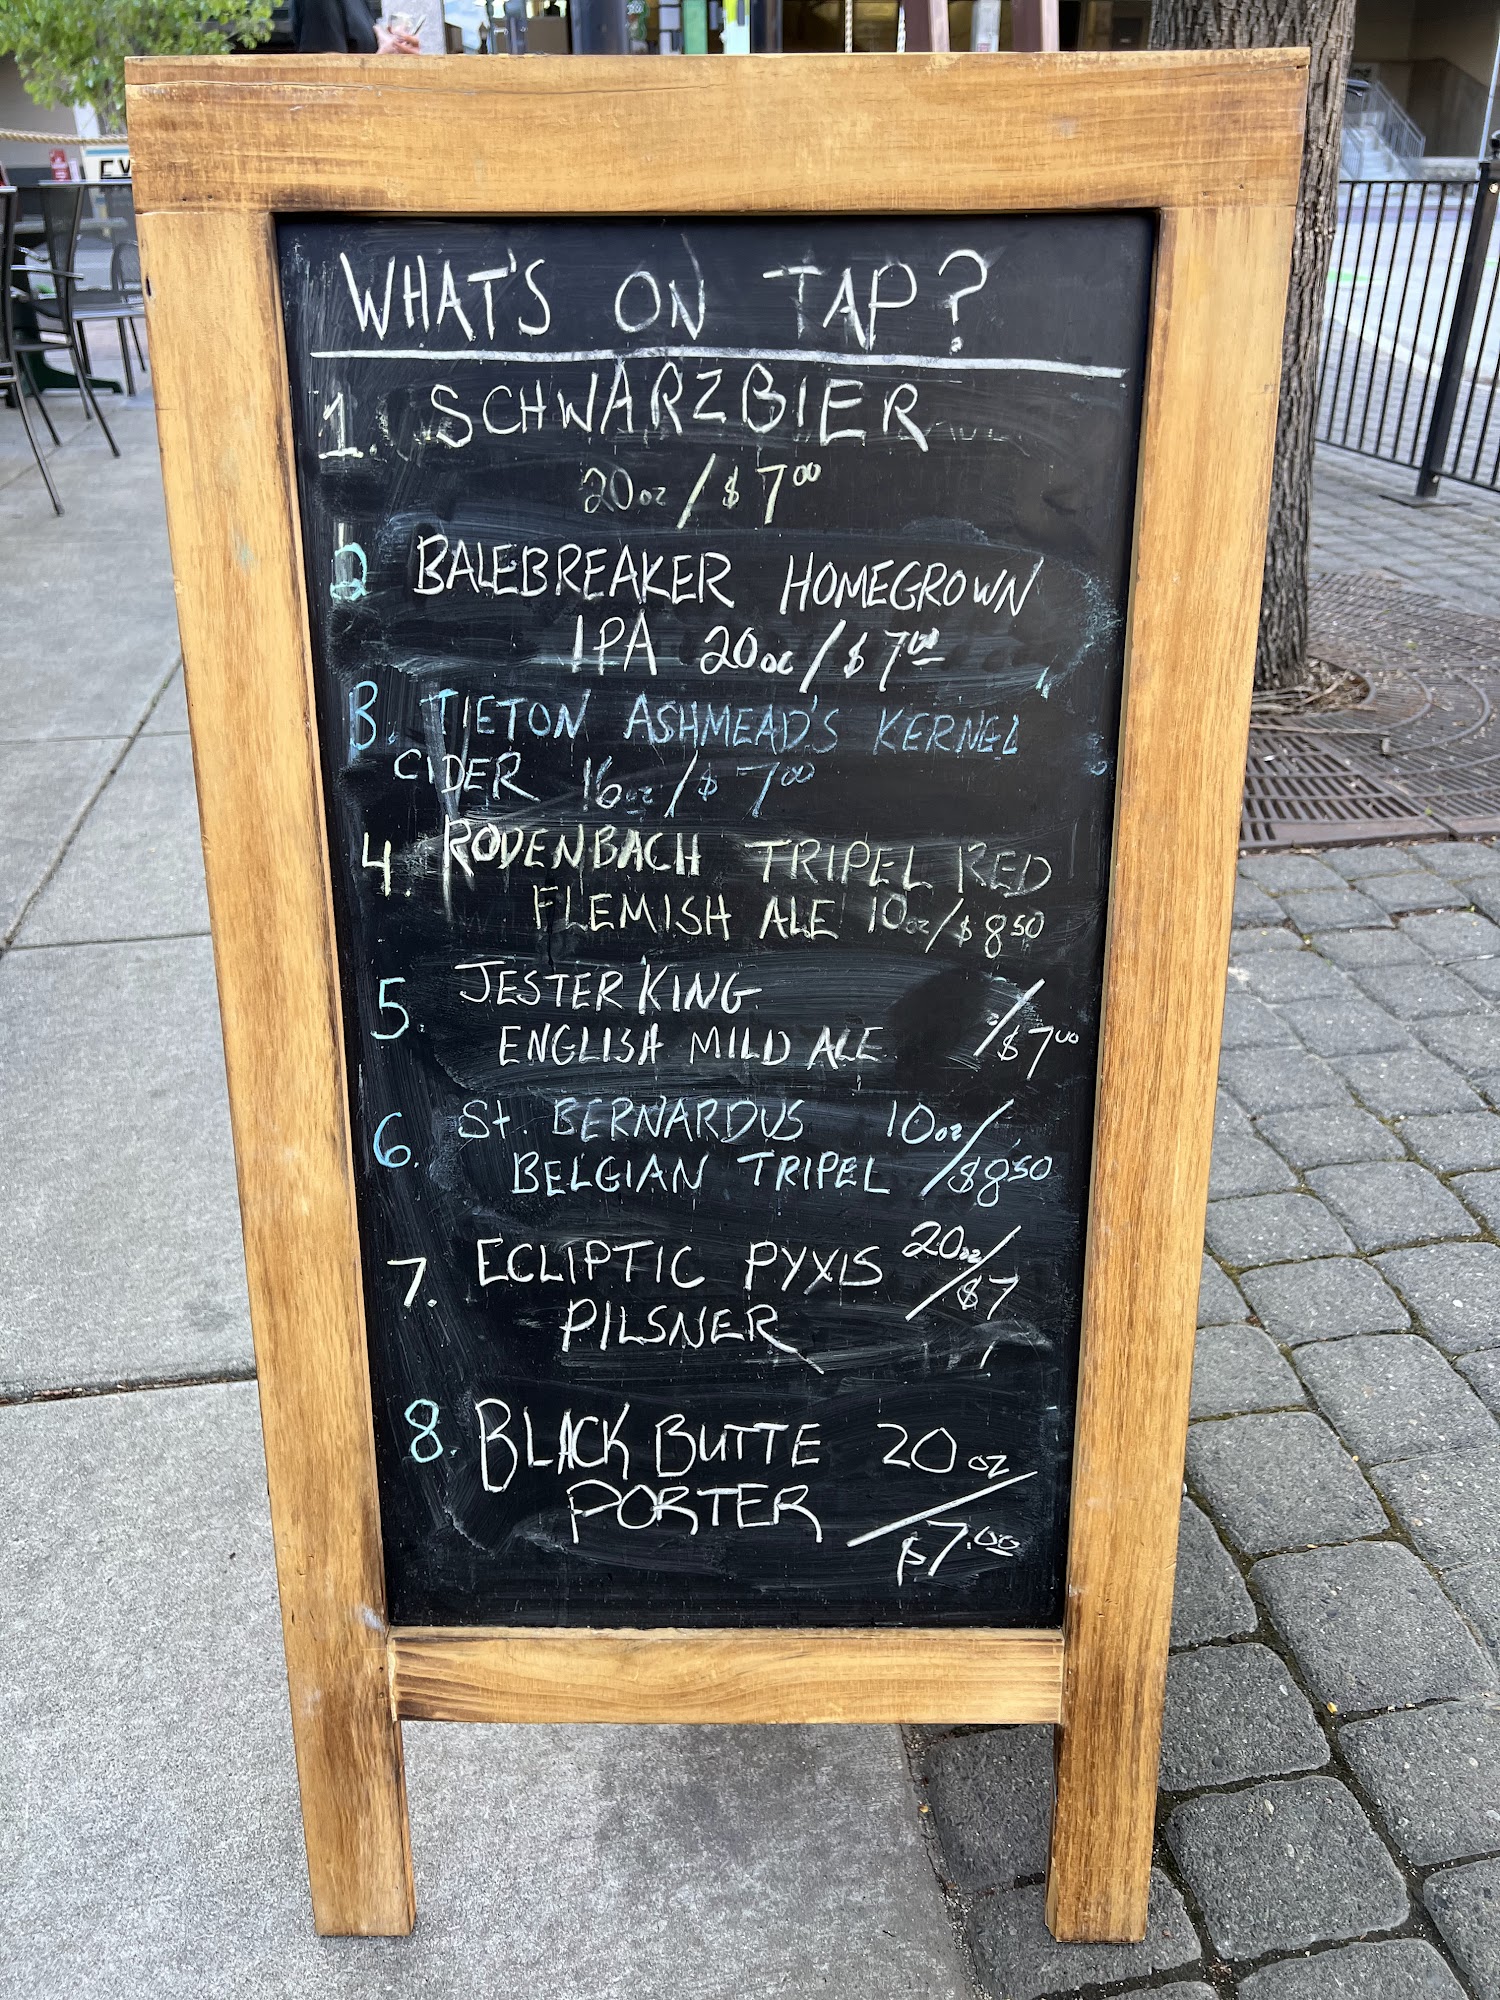 WHAT'S ON TAP?
1. SCHWARZBIER
20oz/$7⁰⁰
2 BALEBREAKER HOMEGROWN
IPA 20oz/$7⁰⁰
3. TIETON ASHMEAD'S KERNEL
CIDER 16oz/$7⁰⁰
4. RODENBACH TRIPEL RED
FLEMISH ALE 10oz/$8⁵⁰
5. JESTER KING
ENGLISH MILD ALE /$7⁰⁰
6. St. BERNARDUS 10oz/
BELGIAN TRIPEL $8⁵⁰
7. ECLIPTIC PYXIS 20oz/
PILSNER $7
8. BLACK BUTTE 20oz/
PORTER $7.⁰⁰